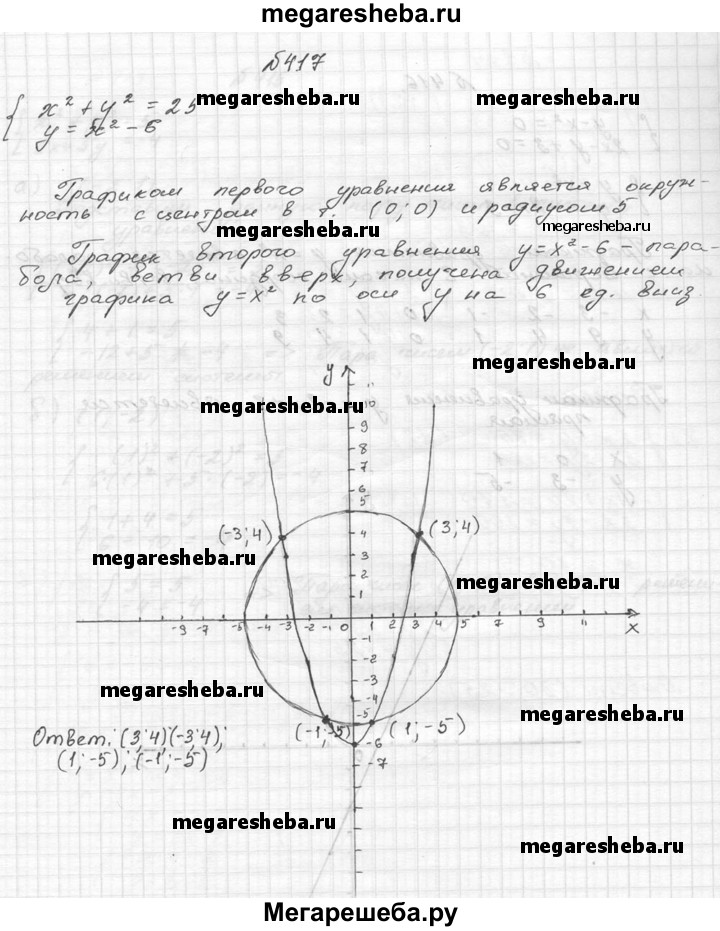 megaresheba.ru
№417
x² + y² = 25
megaresheba.ru
megaresheba.ru
y = x² - 6
Графиком первого уравнения является окруж-
ность с центром в т. (0; 0) и радиусом 5
megaresheba.ru
megaresheba.ru
График второго уравнения y = x² - 6 - пара-
бола, ветви вверх, получена движением
графика y = x² по оси y на 6 ед. вниз.
megaresheba.ru
y
megaresheba.ru
10
9
8
7
6
5
(-3; 4)
4
(3; 4)
megaresheba.ru
3
megaresheba.ru
2
1
-9 -7 -5 -4 -3 -2 -1 0 1 2 3 4 5 6 7 9 11
x
-1
-2
-3
megaresheba.ru
-4
megaresheba.ru
-5
(-1; -5)
(1; -5)
Ответ: (3; 4) (-3; 4),
-6
(1; -5); (-1; -5)
-7
megaresheba.ru
megaresheba.ru
Мегарешеба.ру